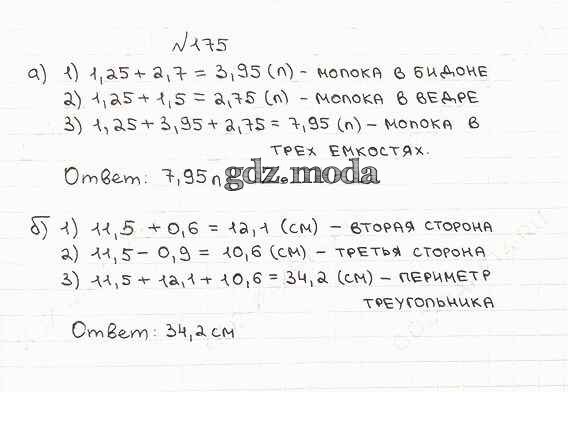 №175
а) 1) 1,25 + 2,7 = 3,95 (л) - молока в бидоне
2) 1,25 + 1,5 = 2,75 (л) - молока в ведре
3) 1,25 + 3,95 + 2,75 = 7,95 (л) - молока в
трех емкостях.
Ответ: 7,95 л gdz.moda
б) 1) 11,5 + 0,6 = 12,1 (см) - вторая сторона
2) 11,5 - 0,9 = 10,6 (см) - третья сторона
3) 11,5 + 12,1 + 10,6 = 34,2 (см) - периметр
треугольника
Ответ: 34,2 см